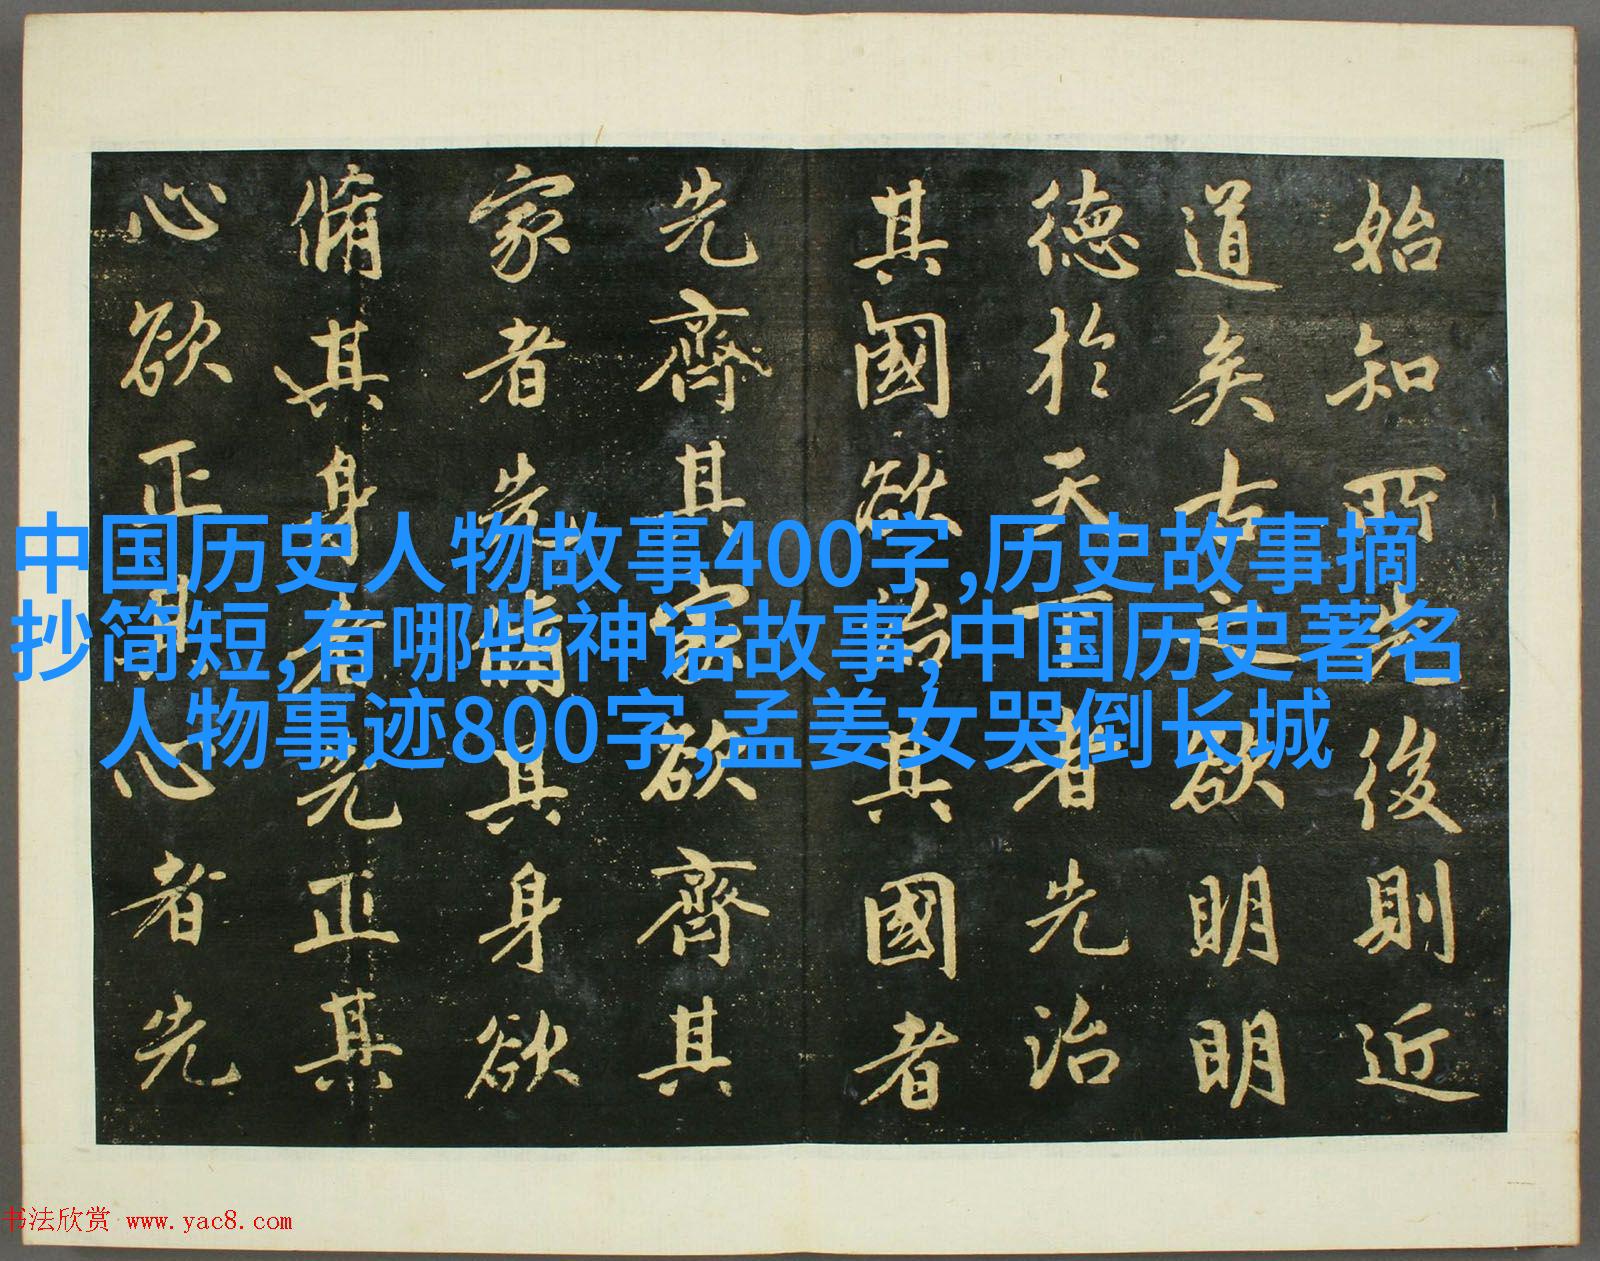 始知所先後則近
道矣古之欲明明
德於天下者先治
其國欲治其國者
先齊其家欲齊其
家者先脩其身欲
脩其身者先正其
心欲正其心者先
中国历史人物故事400字,历史故事摘
抄简短,有哪些神话故事,中国历史著名
人物事迹800字,孟姜女哭倒长城
书法欣赏 www.yac8.com